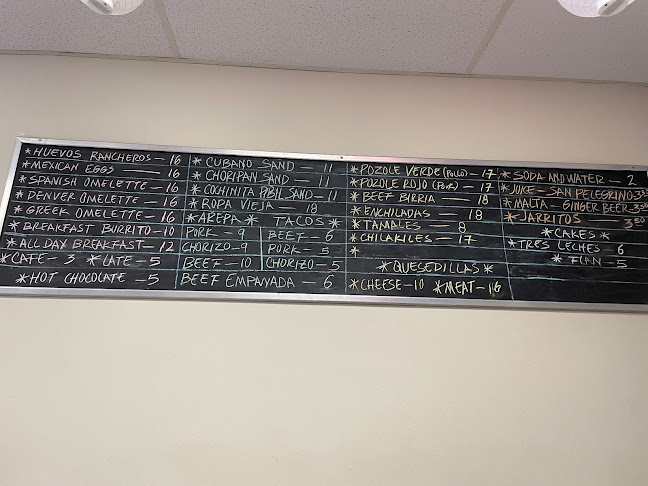 *HUEVOS RANCHEROS - 16
*MEXICAN EGGS - 16
*SPANISH OMELETTE - 16
*DENVER OMELETTE - 16
*GREEK OMELETTE - 16
*BREAKFAST BURRITO - 10
*ALL DAY BREAKFAST - 12
*CAFE - 3 *LATE - 5
*HOT CHOCOLATE - 5
*CUBANO SAND - 11
*CHORIPAN SAND - 11
*COCHINITA PIBIL SAND - 11
*ROPA VIEJA - 18
*AREPA* TACOS*
PORK - 9 BEEF - 6
CHORIZO - 9 PORK - 5
BEEF - 10 CHORIZO - 5
BEEF EMPANADA - 6
*POZOLE VERDE (Pollo) - 17
*POZOLE ROJO (Pork) - 17
*BEEF BIRRIA - 18
*ENCHILADAS - 18
*TAMALES - 8
*CHILAKILES - 17
*
*QUESEDILLAS*
*CHEESE - 10 *MEAT - 16
*SODA AND WATER - 2
*JUKE - SAN PELEGRINO 3.50
*MALTA - GINGER BEER 3.50
*JARRITOS 3.50
*CAKES*
*TRES LECHES - 6
*FLAN - 5